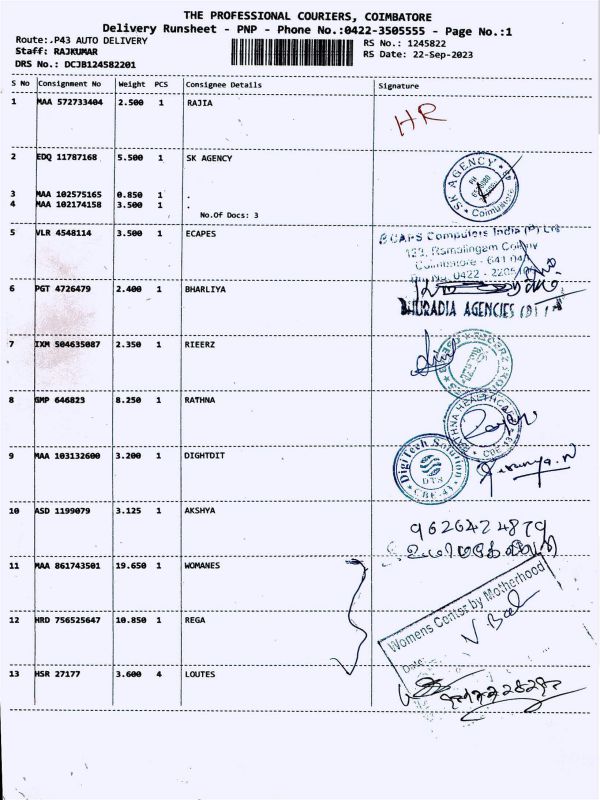 THE PROFESSIONAL COURIERS, COIMBATORE
Delivery Runsheet - PNP - Phone No.:0422-3505555 - Page No.:1
Route:.P43 AUTO DELIVERY
RS No.: 1245822
Staff: RAJKUMAR
RS Date: 22-Sep-2023
DRS No.: DCJB124582201
S No Consignment No Weight PCS Consignee Details Signature
1 MAA 572733404 2.500 1 RAJIA
HR
2 EDQ 11787168 5.500 1 SK AGENCY
SK AGENCY
Coimbatore
3 MAA 102575165 0.850 1 .
4 MAA 102174158 3.500 1 .
No.Of Docs: 3
5 VLR 4548114 3.500 1 ECAPES
Computers India (P) Ltd
123, Ramalingam Colony
Coimbatore - 641 04
Ph No. 0422 -
6 PGT 4726479 2.400 1 BHARLIYA
BHURADIA AGENCIES (P)
7 IXM 504635087 2.350 1 RIEERZ
8 GMP 646823 8.250 1 RATHNA
RATHNA HEALTHCARE
CBE-43
9 MAA 103132600 3.200 1 DIGHTDIT
DigiTech Solution
DTS
CBE-43
10 ASD 1199079 3.125 1 AKSHYA
9626424879
11 MAA 861743501 19.650 1 WOMANES
Womens Center by Motherhood
Date:
12 HRD 756525647 10.850 1 REGA
13 HSR 27177 3.600 4 LOUTES